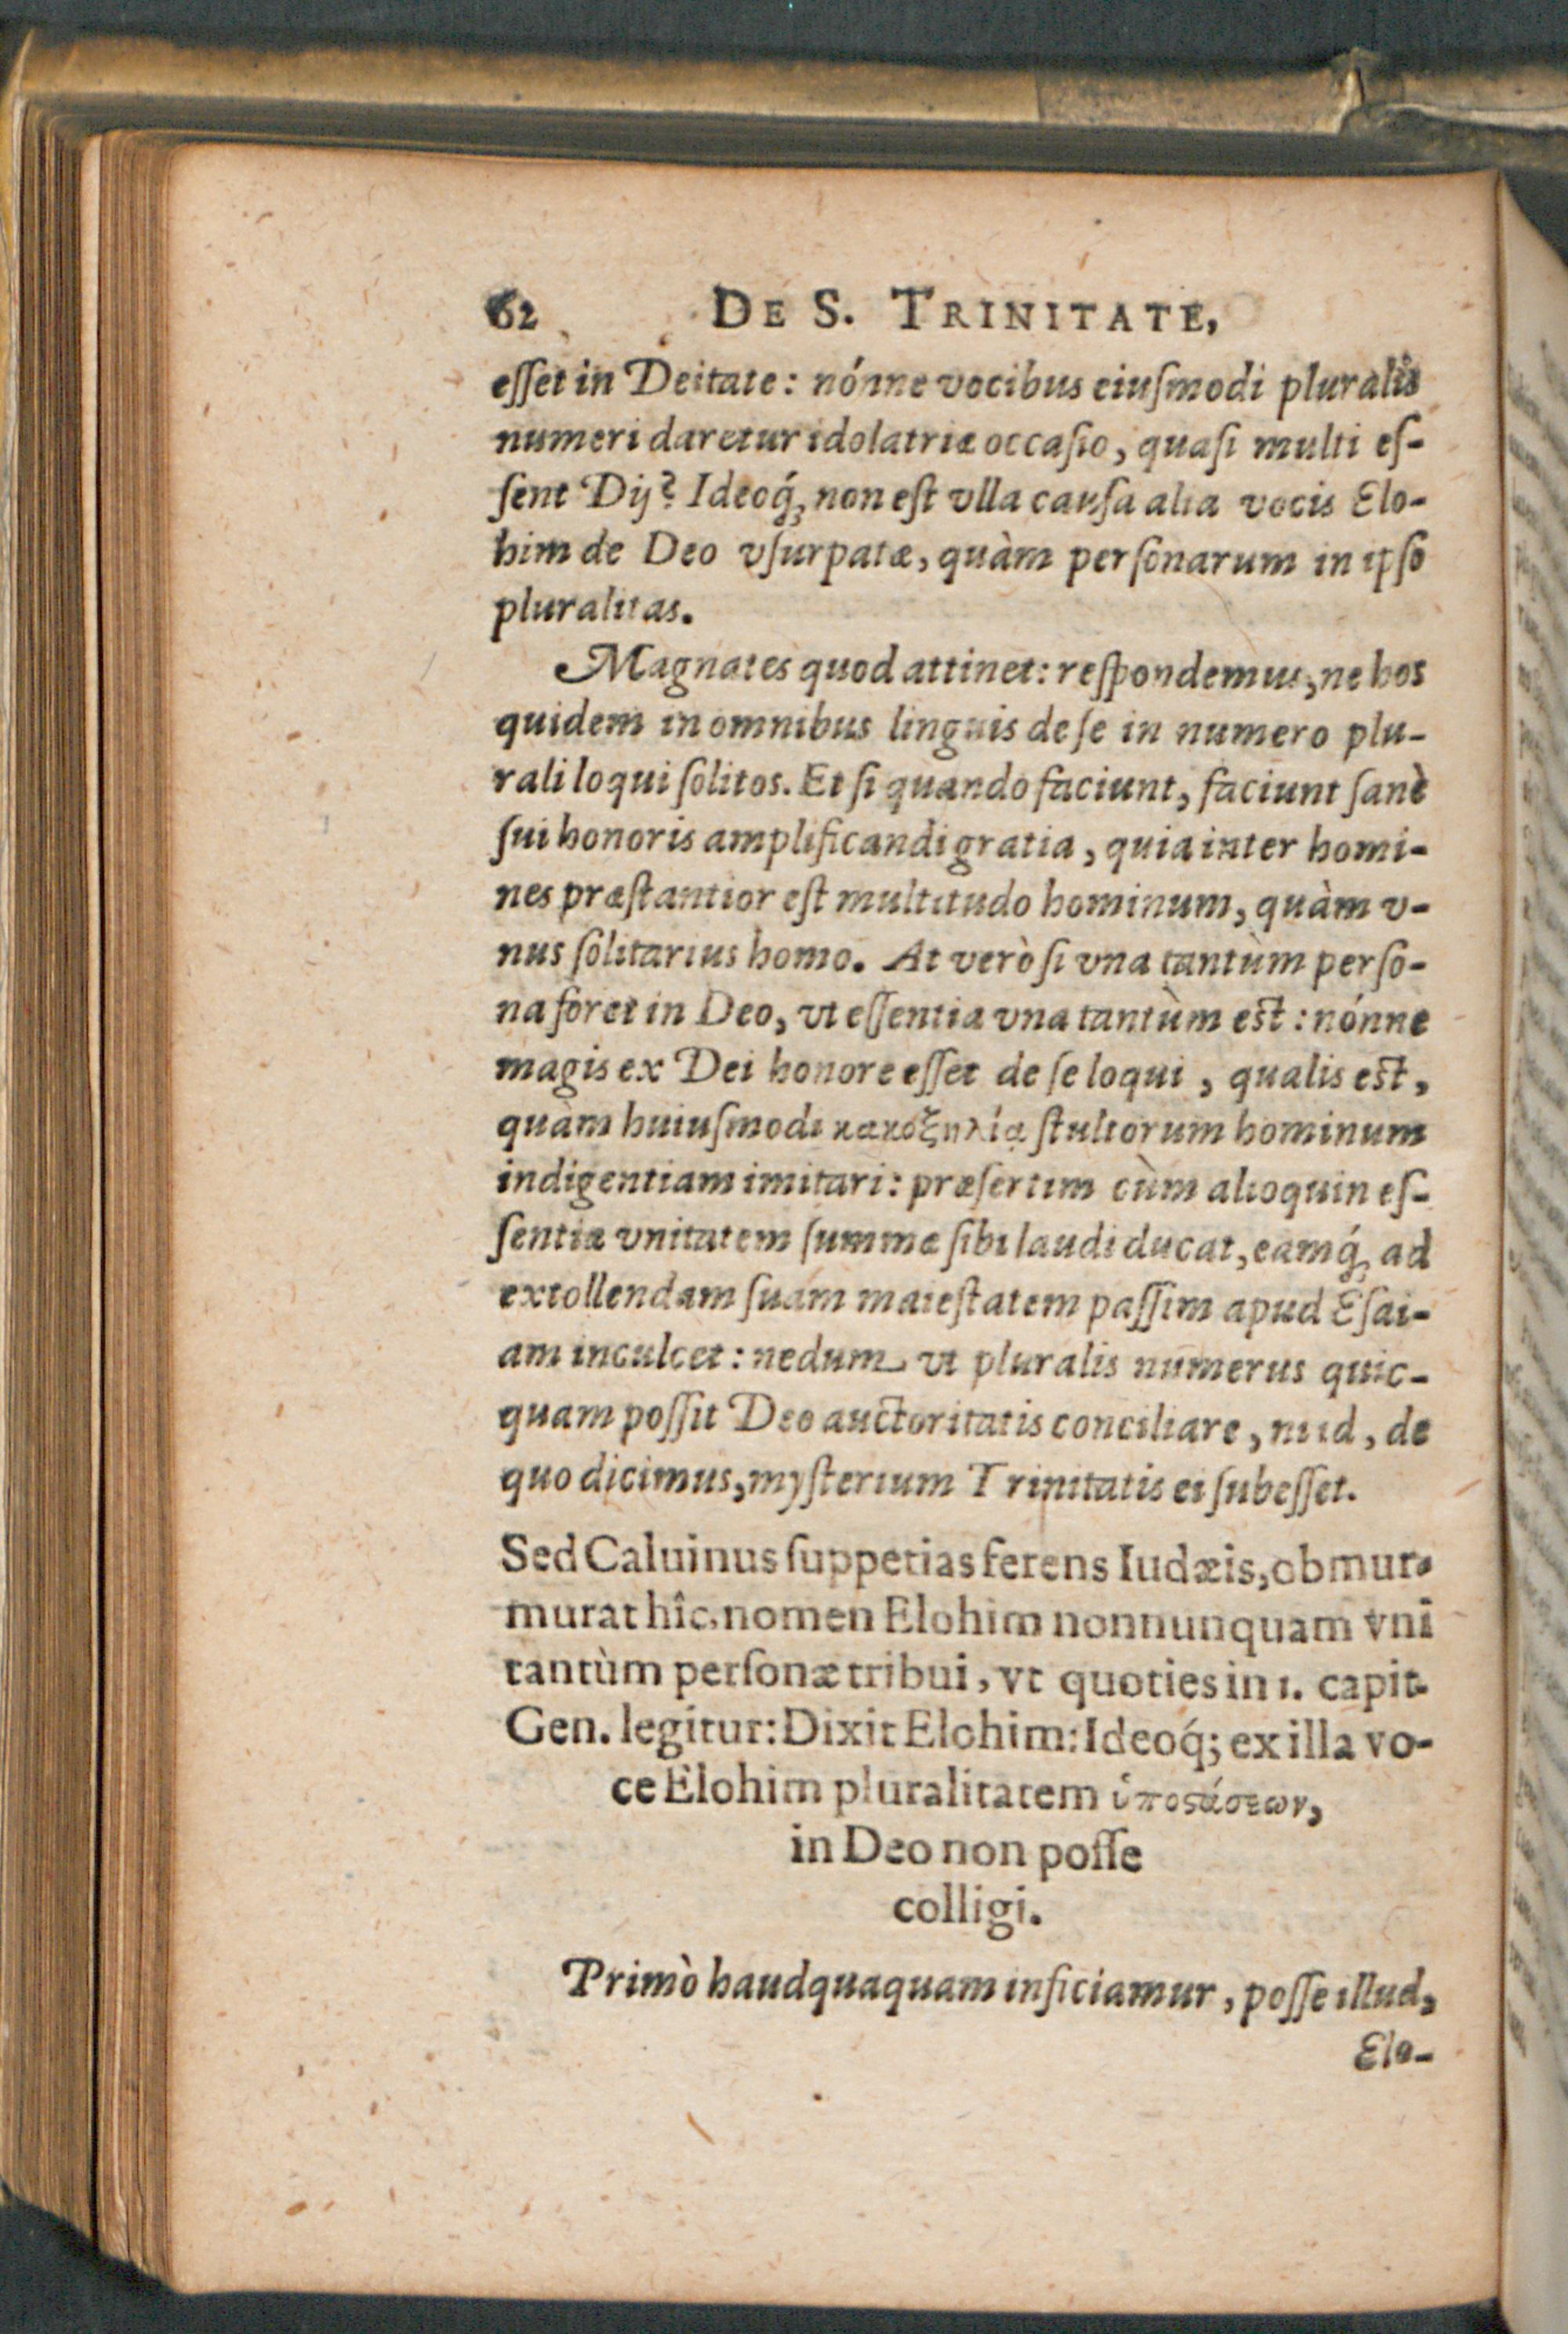 62 DE S. TRINITATE,
eſſet in Deitate: nónne vocibus eiuſmodi pluralis
numeri daretur idolatriæ occaſio, quaſi multi eſ-
ſent Dij? Ideoq́, non eſt vlla cauſa alia vocis Elo-
him de Deo vſurpatæ, quàm perſonarum in ipſo
pluralitas.
Magnates quod attinet: reſpondemus, ne hos
quidem in omnibus linguis de ſe in numero plu-
rali loqui ſolitos. Et ſi quando faciunt, faciunt ſanè
ſui honoris amplificandi gratia, quia inter homi-
nes præſtantior eſt multitudo hominum, quàm v-
nus ſolitarius homo. At verò ſi vna tantùm perſo-
na foret in Deo, vt eſſentia vna tantùm eſt: nónne
magis ex Dei honore eſſet de ſe loqui, qualis eſt,
quàm huiuſmodi κακοξηλίᾳ ſtultorum hominum
indigentiam imitari: præſertim cùm alioquin eſ-
ſentiæ vnitatem ſummæ ſibi laudi ducat, eamq́, ad
extollendam ſuam maieſtatem paſſim apud Eſai-
am inculcet: nedum vt pluralis numerus quic-
quam poſſit Deo auctoritatis conciliare, ni id, de
quo dicimus, myſterium Trinitatis ei ſubeſſet.
Sed Caluinus ſuppetias ferens Iudæis, obmur-
murat hîc, nomen Elohim nonnunquam vni
tantùm perſonæ tribui, vt quoties in 1. capit.
Gen. legitur: Dixit Elohim: Ideoq́; ex illa vo-
ce Elohim pluralitatem ὑποϛάσεων,
in Deo non poſſe
colligi.
Primò haudquaquam inficiamur, poſſe illud,
Elo-